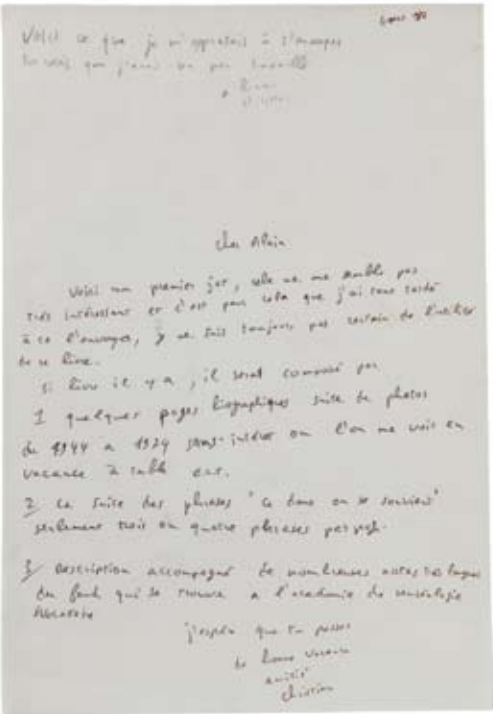 Voici ce que je m'apprêtais à t'envoyer
tu vois que j'avais un peu travaillé
cher Alain
Voici mon premier jet, cela ne me semble pas
très intéressant et c'est pour cela que j'ai tant tardé
à te l'envoyer, je ne suis toujours pas certain de l'utilité
de ce livre.
Si livre il y a, il serait composé par
1 quelques pages biographiques suite de photos
de 1944 a 1974 où l'on me voit en
vacance
2/ La suite des phrases "Ce dont on se souvient"
seulement trois ou quatre phrases par page.
3/ Description accompagné de nombreuses notes
du fond qui se trouve a l'académie de
j'espère que tu passes
de bonne vacance
amitié
Christian